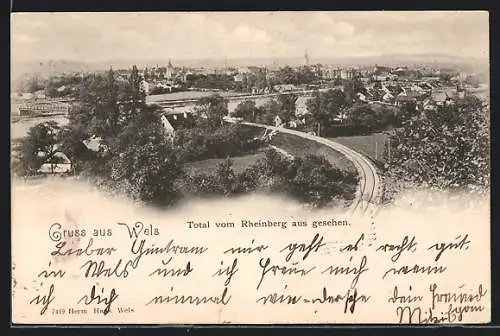 Gruss aus Wels
Total vom Rheinberg aus gesehen.
Lieber Guntram mir geht es recht gut
in Wels und ich freue mich wenn
ich Dich einmal wieder dein Freund
7449 Herm Wels